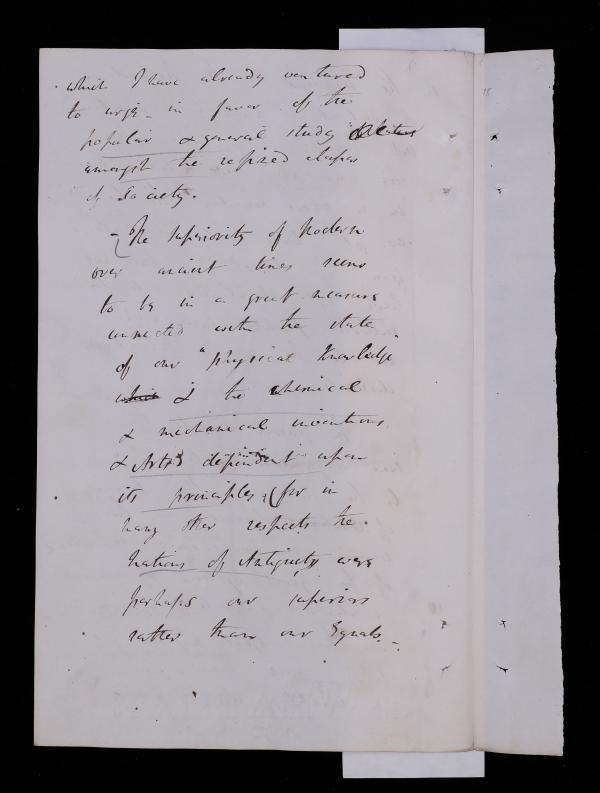 which I have already ventured
to urge - in favor of the
popular & general study of Nature
amongst the refined classes
of Society.
- The superiority of Modern
over ancient times seems
to be in a great measure
connected with the state
of our "physical Knowledge"
which & the chemical
& mechanical inventions
& Arts dependent upon
its principles; (for in
many other respects the
Nations of Antiquity were
perhaps our superiors
rather than our Equals. -